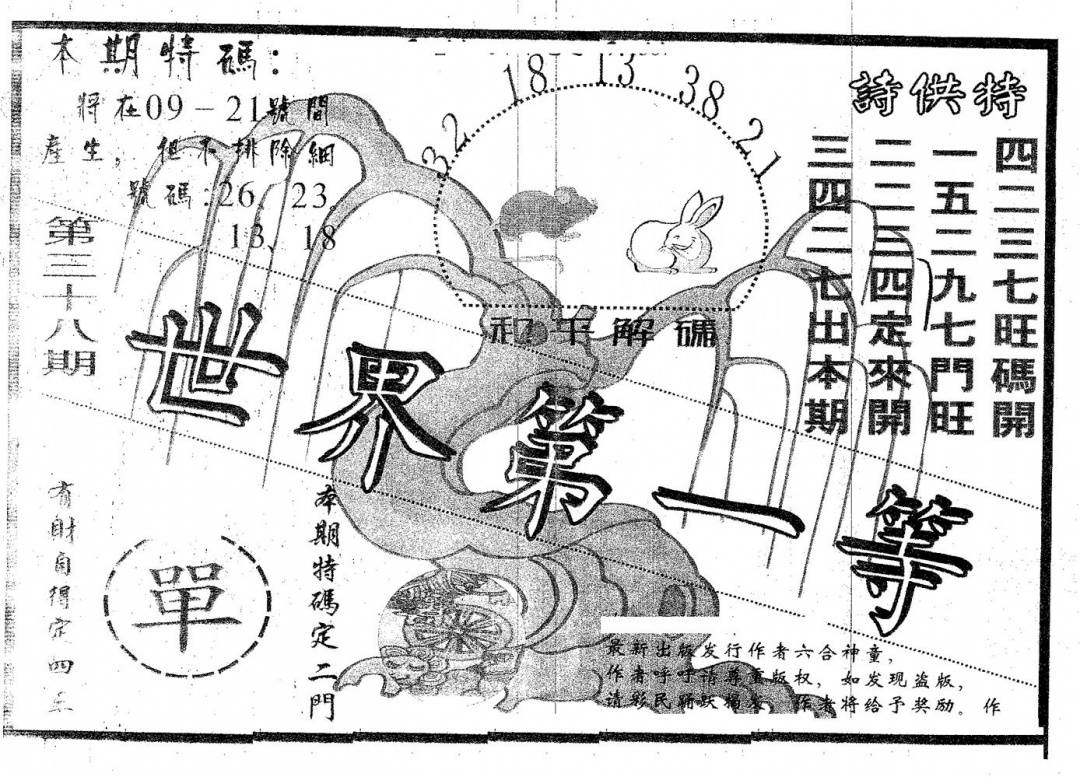 本期特碼：
將在09－21號間
產生，但不排除細
號碼：26、23、
13、18
第三十八期
32 18 13 38 21
特供詩
四二三七旺碼開
一五二九七門旺
二二三四定來開
三四二七出本期
和平解碼
世界第一等
有財自得定四
單
本期特碼定二門
最新出版发行作者六合神童，
作者呼吁请尊重版权，如发现盗版，
请彩民踊跃 作者将给予奖励。作